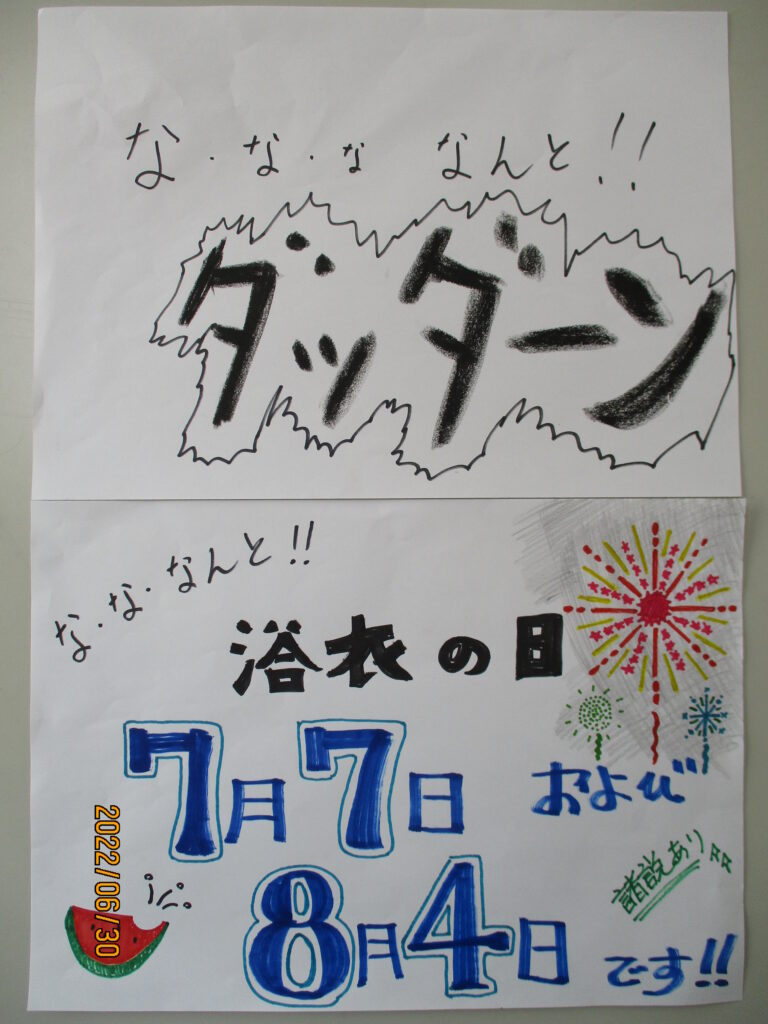 な・な・な なんと!!
ダッダーン
な・な・なんと!!
浴衣の日
7月7日 および
諸説あり
8月4日 です!!
2022/06/30